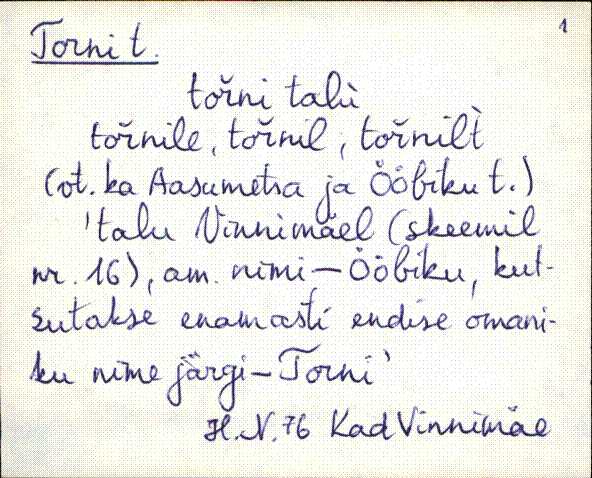 1
Torni t.
tořni talù
tořnile, tořnil, tořnilt̀
(vt. ka Aasumetsa ja Ööbiku t.)
'talu Vinnimäel (skeemil
nr. 16), am. nimi – Ööbiku, kut-
sutakse enamasti endise omani-
ku nime järgi – Torni'
H.N. 76 Kad Vinnimäe